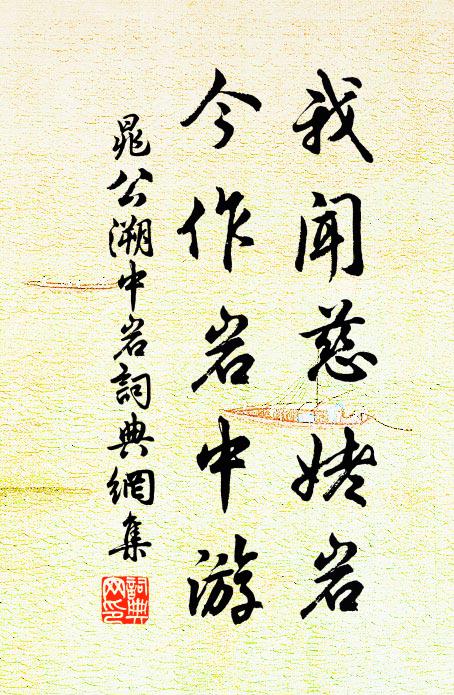 我闻慈姥岩
今作岩中游
晁公溯中岩詞典網集
詞典網印